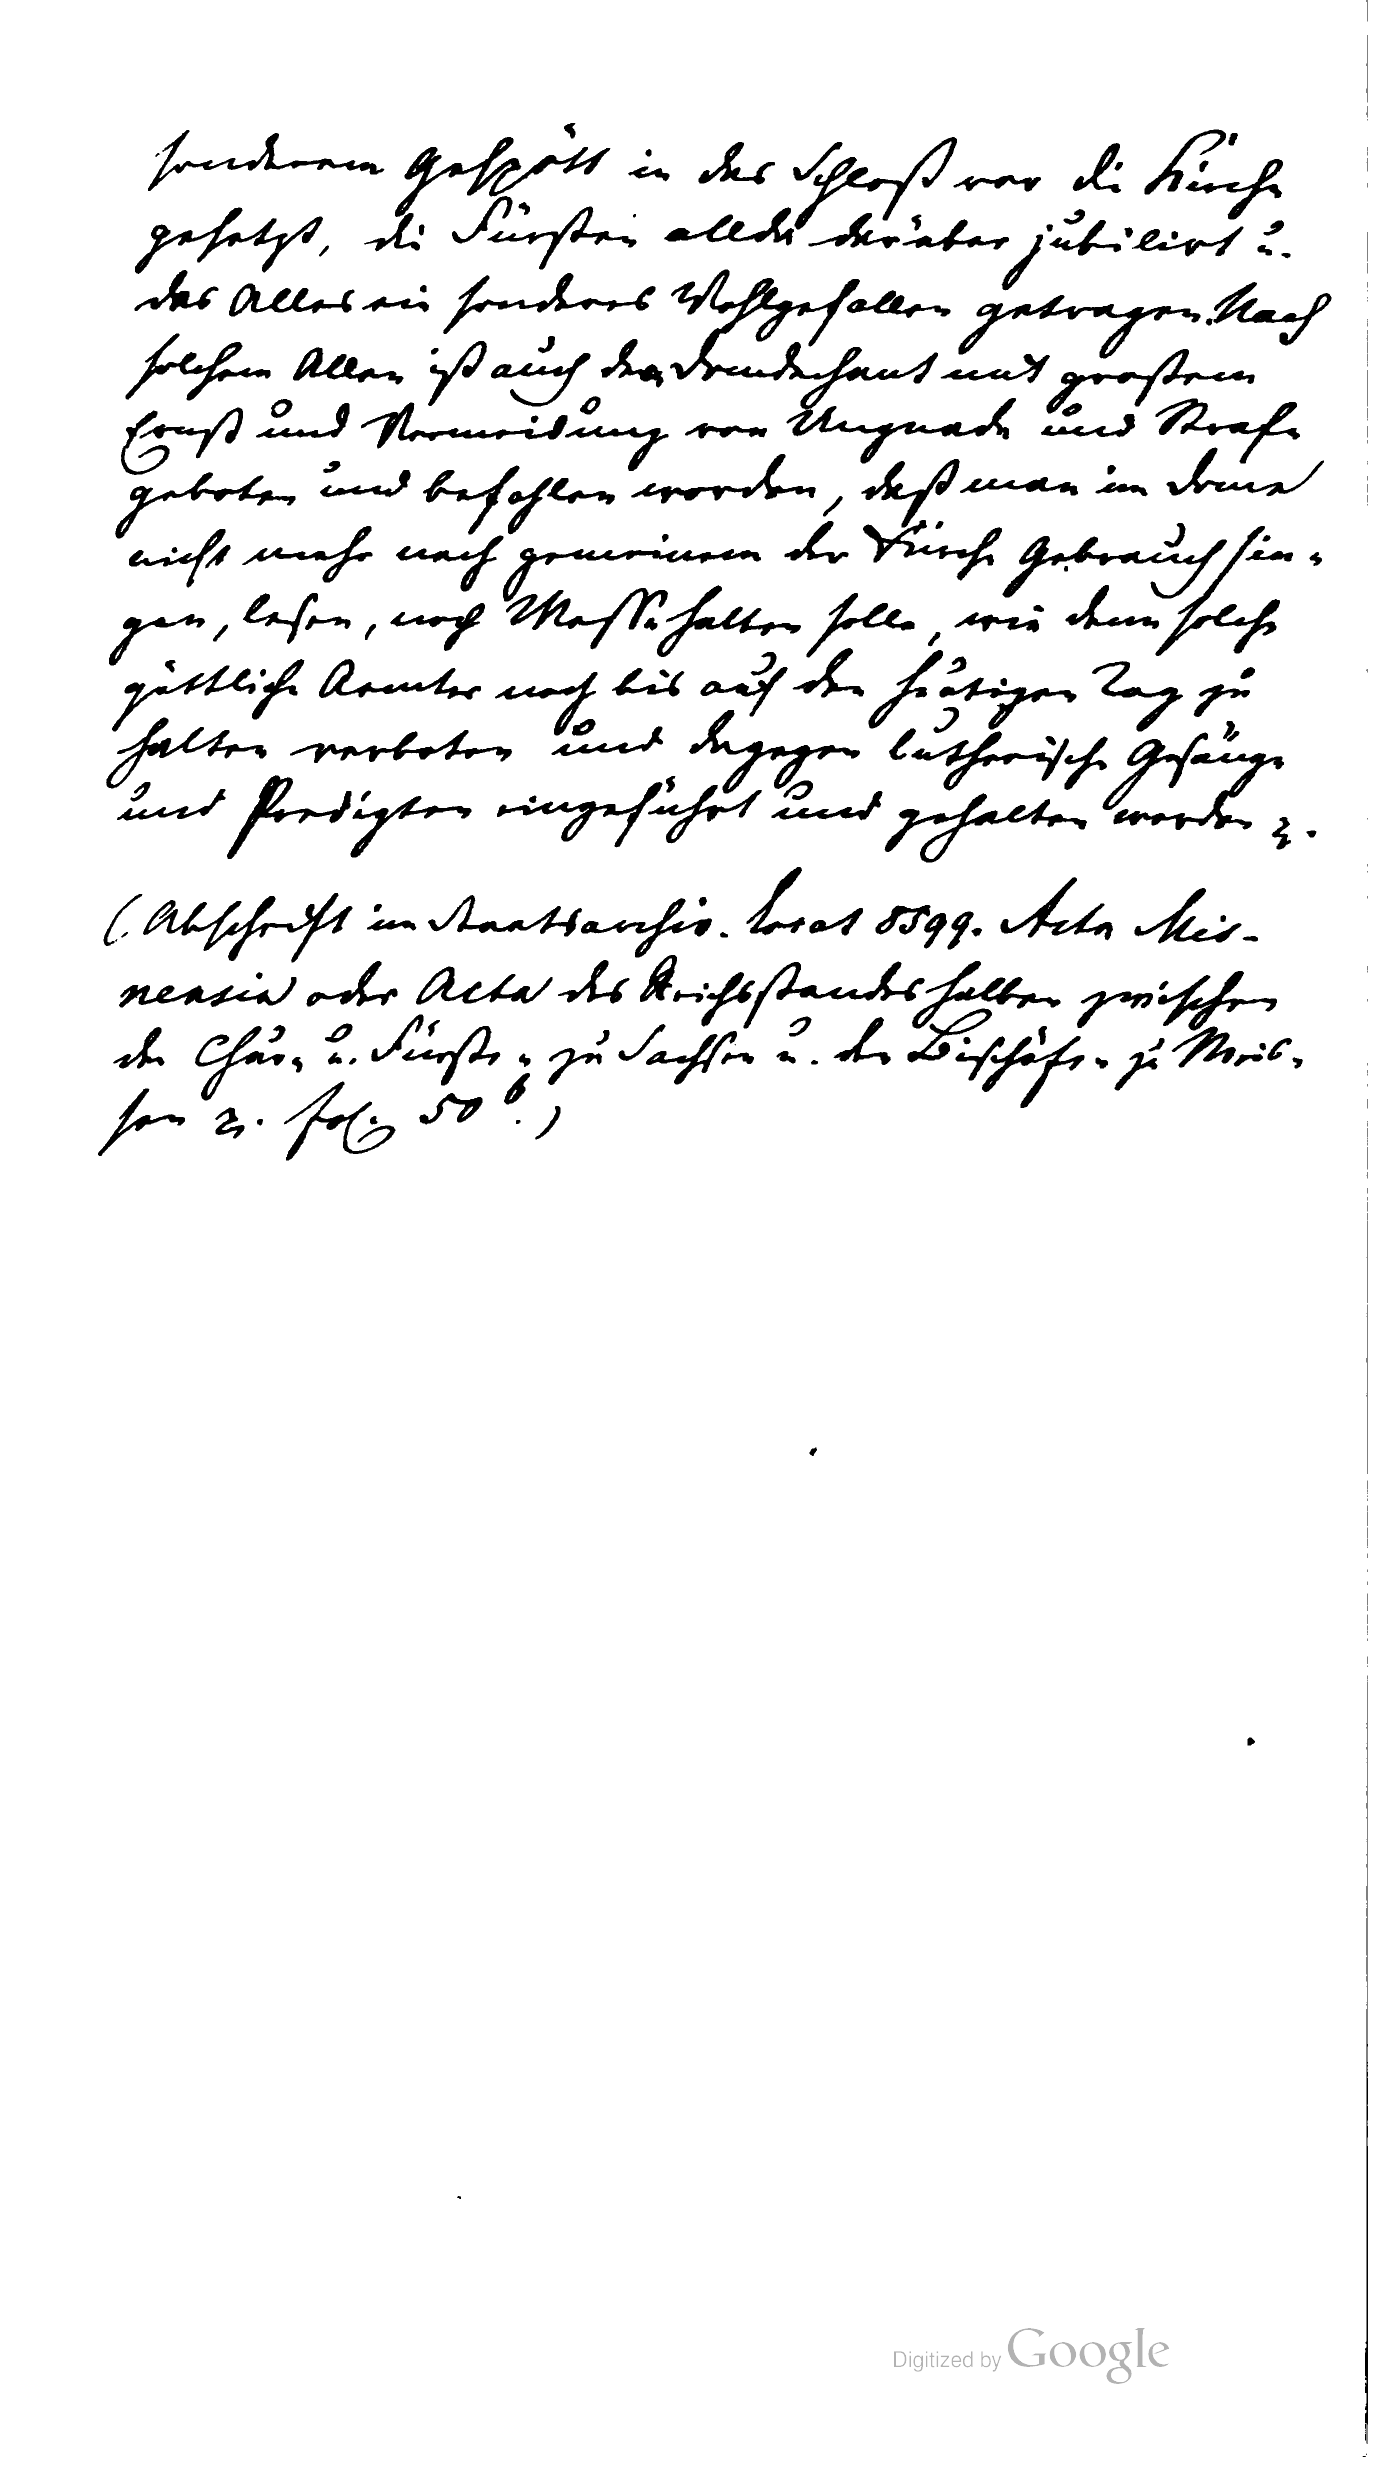 sonderem Gespött in das Schloß vor die Kirche
gesetzt, die Fürsten allda darüber jubilirt u.
das Alles ein sonderes Wohlgefallen getragen. Nach
solchem Allen ist auch dem Domdechant mit großem
Ernst und Vermeidung von Ungnade und Strafe
geboten und befohlen worden, daß man im Dome
nicht mehr nach gemeinem der Kirche Gebrauch sin-
gen, lesen, noch Messe halten solle, wie denn solche
göttliche Aemter noch bis auf den heutigen Tag zu
halten verboten und dagegen lutherische Gesänge
und Predigten eingeführt und gehalten werden ꝛc.
(Abschrift im Staatsarchiv. Locat 8599. Acta Mis-
nensia oder Acta des Reichsstandes halber zwischen
den Chur- u. Fürsten zu Sachsen u. den Bischöfen zu Meis-
sen ꝛc. fol. 50 b.)
Digitized by Google